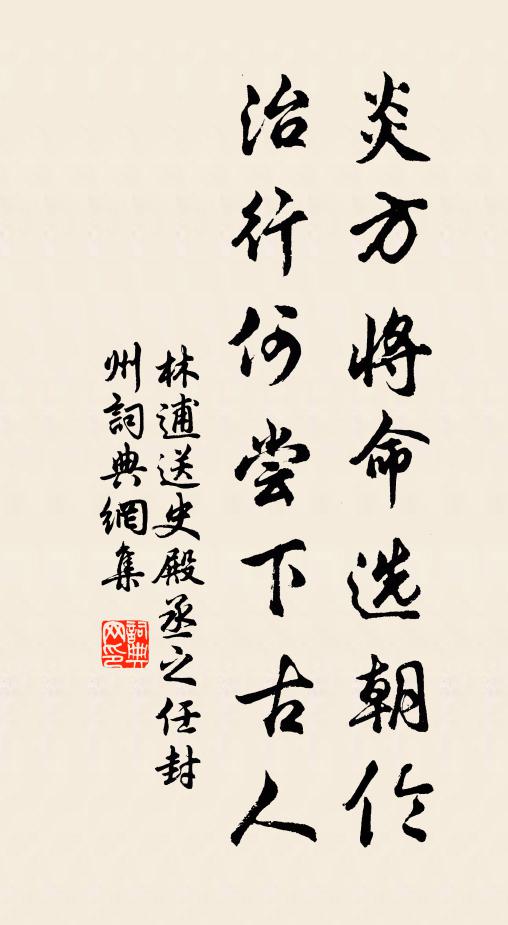 炎方将命选朝伦
治行何尝下古人
林逋送史殿丞之任封
州詞典網集
詞典
网印